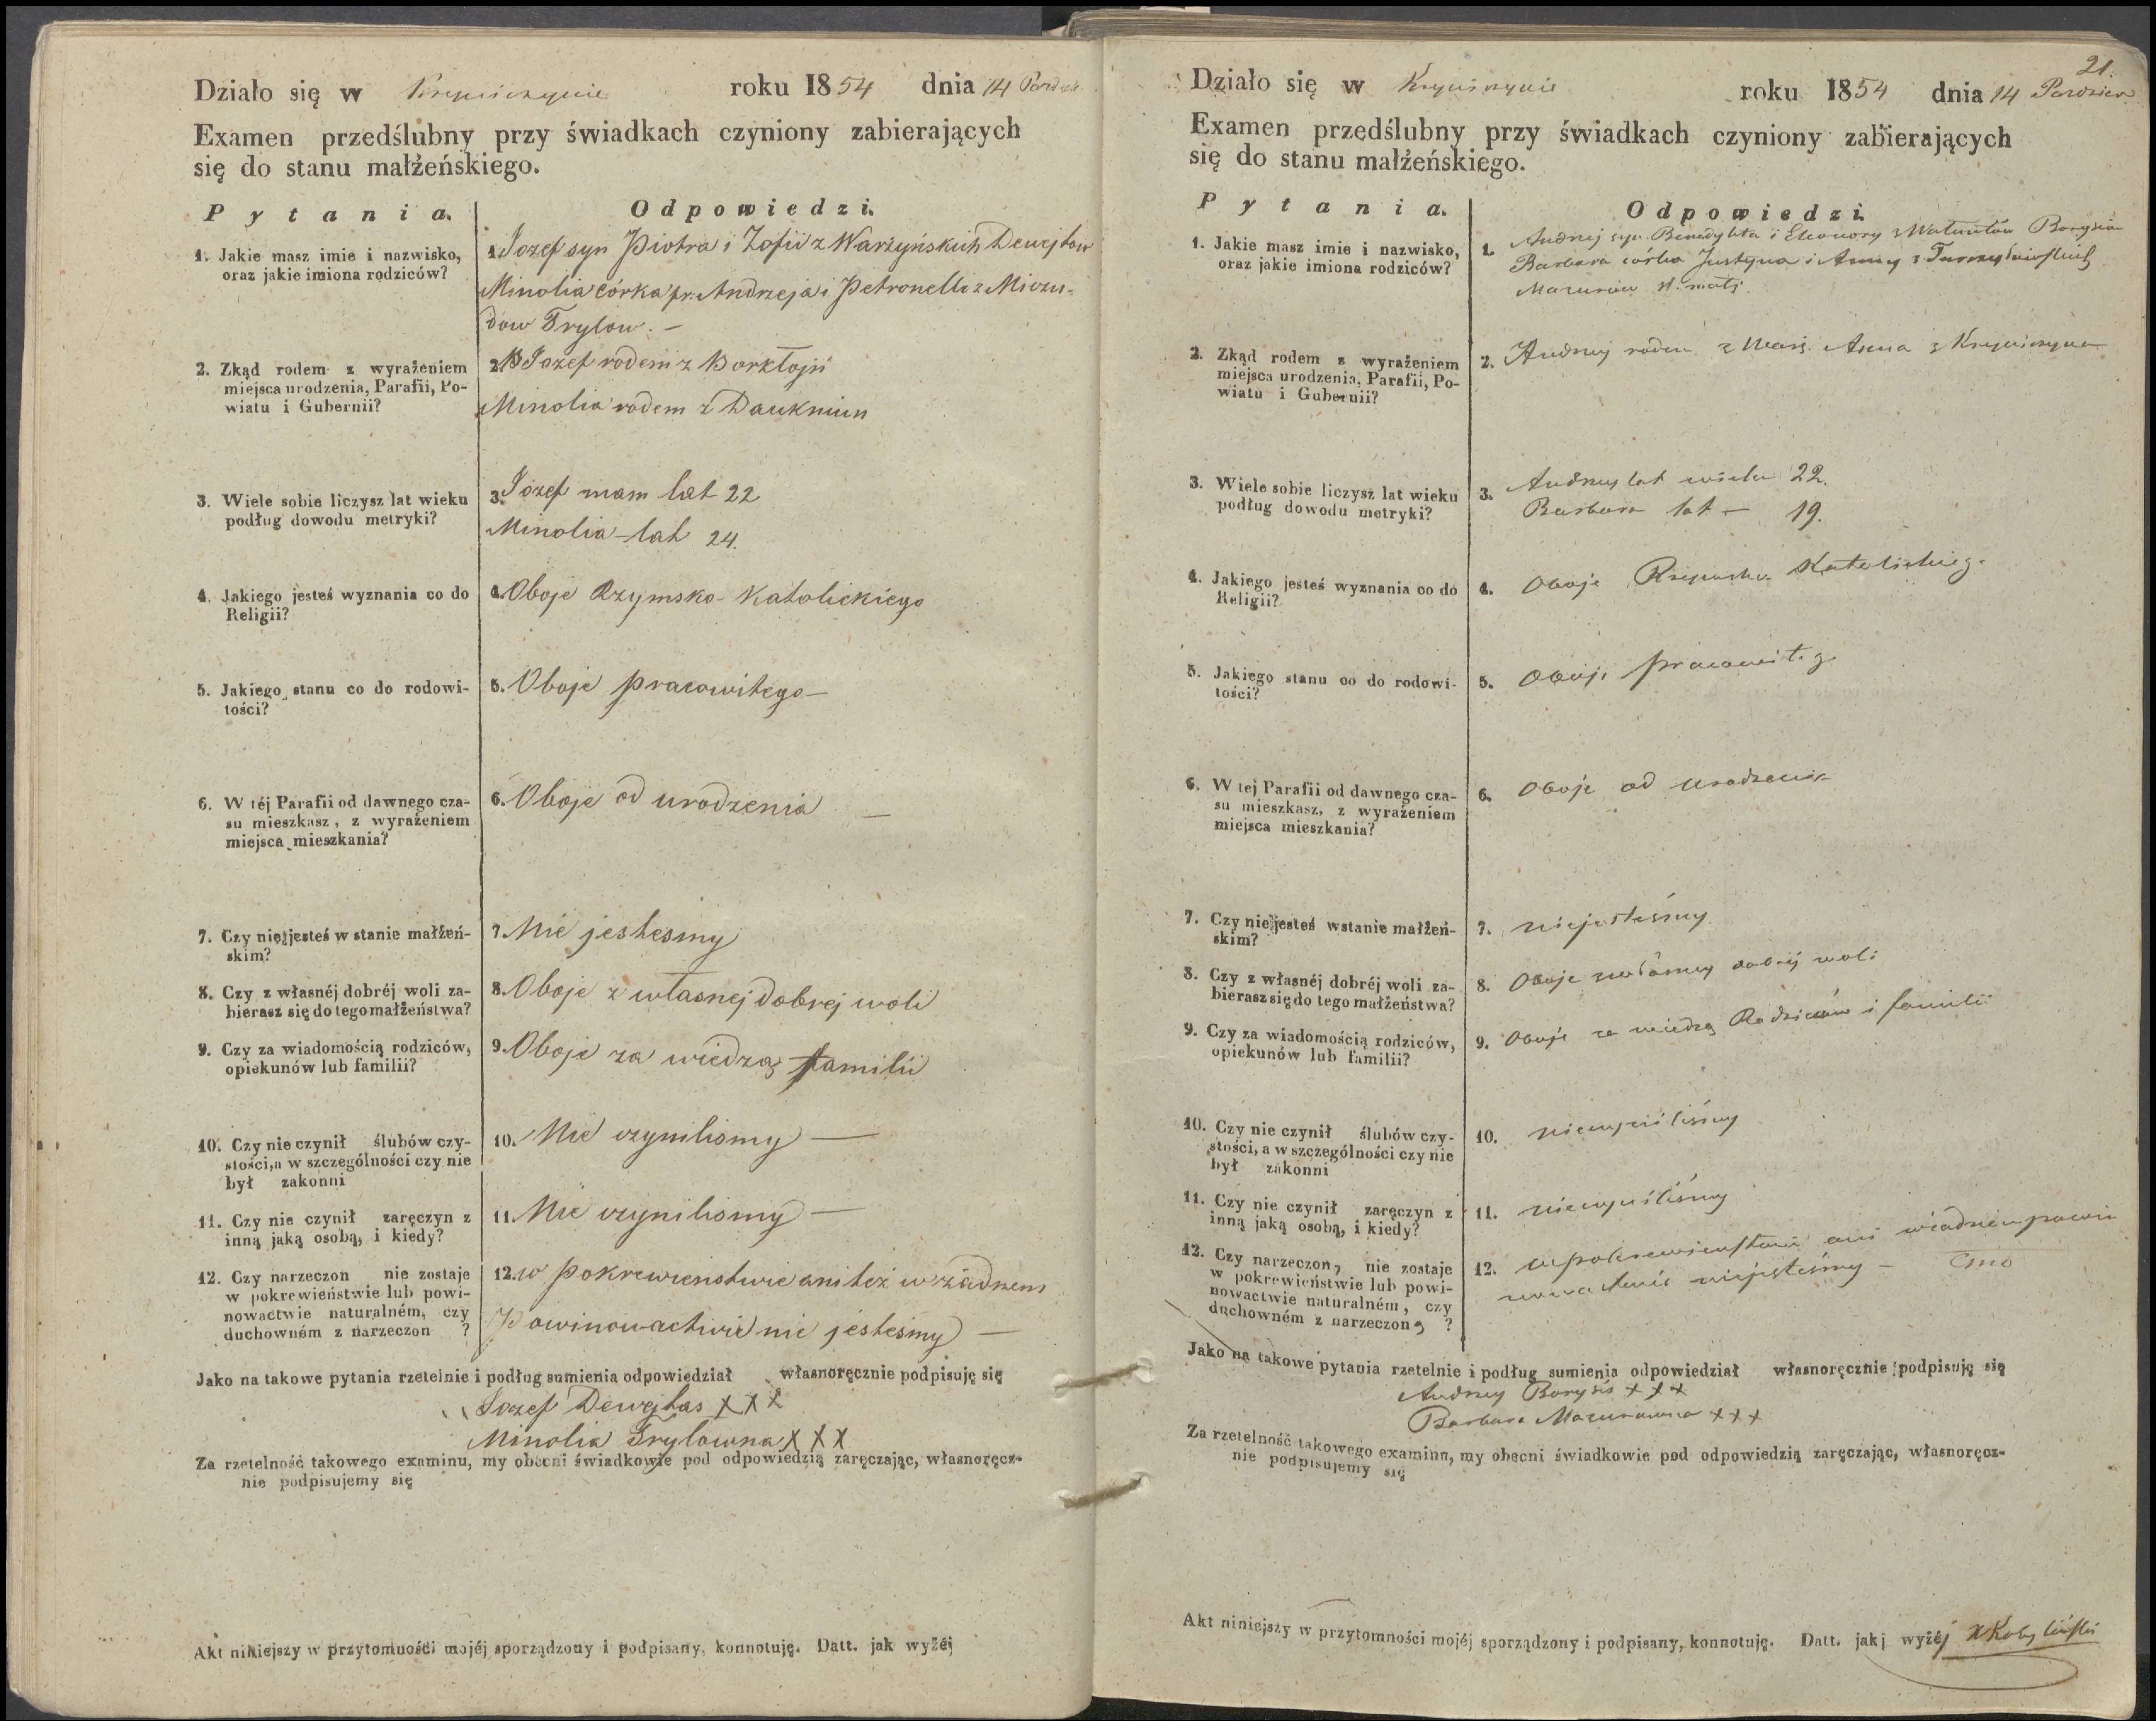 Działo się w Krzywiczynie roku 1854 dnia 14 Pazdzier
Examen przedślubny przy świadkach czyniony zabierających
się do stanu małżeńskiego.
Pytania. Odpowiedzi.
1. Jakie masz imie i nazwisko,
oraz jakie imiona rodziców?
1. Jozef syn Piotra i Zofii z Warżyńskich Dewejtow
Minolia córka Andrzeja i Petronelli z Miczu-
dow Trylow. –
2. Zkąd rodem z wyrażeniem
miejsca urodzenia, Parafii, Po-
wiatu i Gubernii?
2. Jozef rodem z Borkłojń
Minolia rodem z Daukniun
3. Wiele sobie liczysz lat wieku
podług dowodu metryki?
3. Jozef mam lat 22
Minolia – lat 24.
4. Jakiego jesteś wyznania co do
Religii?
4. Oboje Rzymsko-Katolickiego
5. Jakiego stanu co do rodowi-
tości?
5. Oboje pracowitego –
6. W téj Parafii od dawnego cza-
su mieszkasz, z wyrażeniem
miejsca mieszkania?
6. Oboje od urodzenia –
7. Czy nie jesteś w stanie małżeń-
skim?
7. Nie jestesmy
8. Czy z własnéj dobréj woli za-
bierasz się do tego małżeństwa?
8. Oboje z własnej dobrej woli
9. Czy za wiadomością rodziców,
opiekunów lub familii?
9. Oboje za wiedzą familii
10. Czy nie czynił ślubów czy-
stości, a w szczególności czy nie
był zakonni
10. Nie czynilismy –
11. Czy nie czynił zaręczyn z
inną jaką osobą, i kiedy?
11. Nie czynilismy –
12. Czy narzeczon nie zostaje
w pokrewieństwie lub powi-
nowactwie naturalném, czy
duchowném z narzeczon ?
12. w pokrewienstwie ani też w żadnem
Powinowactwie nie jestesmy –
Jako na takowe pytania rzetelnie i podług sumienia odpowiedział własnoręcznie podpisuję się
Jozef Dewejtas XXX
Minolia Trylowna XXX
Za rzetelność takowego examinu, my obecni świadkowie pod odpowiedzią zaręczając, własnoręcz-
nie podpisujemy się
Akt niniejszy w przytomności mojéj sporządzony i podpisany, konnotuję. Datt. jak wyżéj
21.
Działo się w Krzywiczynie roku 1854 dnia 14 Pazdzier
Examen przedślubny przy świadkach czyniony zabierających
się do stanu małżeńskiego.
Pytania. Odpowiedzi.
1. Jakie masz imie i nazwisko,
oraz jakie imiona rodziców?
1. Andrzej syn Benedykta i Eleonory z Borysów
Barbara corka Justyna i Anny z
Mazurów
2. Zkąd rodem z wyrażeniem
miejsca urodzenia, Parafii, Po-
wiatu i Gubernii?
2. Andrzej rodem z Anna z Krzywiczyna
3. Wiele sobie liczysz lat wieku
podług dowodu metryki?
3. Andrzej lat wieku 22.
Barbara lat – 19.
4. Jakiego jesteś wyznania co do
Religii?
4. Oboje Rzymsko Katolickiego
5. Jakiego stanu co do rodowi-
tości?
5. Oboje pracowitego
6. W tej Parafii od dawnego cza-
su mieszkasz, z wyrażeniem
miejsca mieszkania?
6. Oboje od urodzenia
7. Czy nie jesteś wstanie małżeń-
skim?
7. niejesteśmy
8. Czy z własnéj dobréj woli za-
bierasz się do tego małżeństwa?
8. Oboje zwłasnej dobrej woli
9. Czy za wiadomością rodziców,
opiekunów lub familii?
9. Oboje za wiedzą Rodziców i familii
10. Czy nie czynił ślubów czy-
stości, a w szczególności czy nie
był zakonni
10. nieczyniliśmy
11. Czy nie czynił zaręczyn z
inną jaką osobą, i kiedy?
11. nieczyniliśmy
12. Czy narzeczon, nie zostaje
w pokrewieństwie lub powi-
nowactwie naturalném, czy
duchowném z narzeczoną ?
12. wpokrewienstwie ani wżadnem powi
nowactwie niejesteśmy –
Jako na takowe pytania rzetelnie i podług sumienia odpowiedział własnoręcznie podpisuję się
Andrzej Borysis XXX
Barbara Mazurowna XXX
Za rzetelność takowego examinu, my obecni świadkowie pod odpowiedzią zaręczając, własnoręcz-
nie podpisujemy się
Akt niniejszy w przytomności mojéj sporządzony i podpisany, konnotuję. Datt. jakj wyżéj XKobyliński